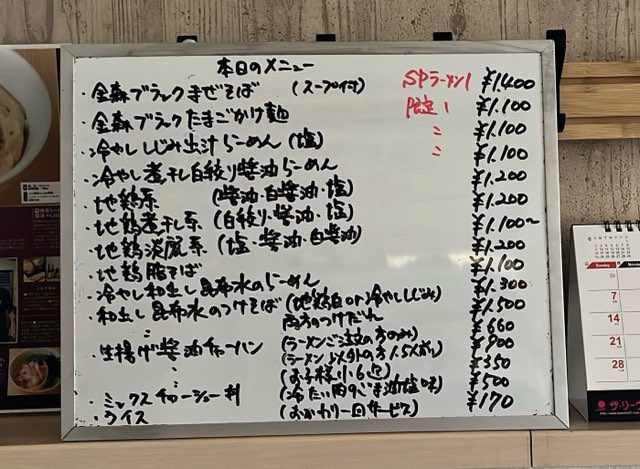 本日のメニュー
・金森ブラックまぜそば (スープ付) SPラーメン1 ¥1.400
・金森ブラックたまごかけ麺 限定1 ¥1.100
・冷やししじみ出汁らーめん (塩) 〃 ¥1.100
・冷やし煮干し白絞り醤油らーめん 〃 ¥1.100
・地鶏系 (醤油・白醤油・塩) ¥1.200
・地鶏煮干し系 (白絞り・醤油・塩) ¥1.200
・地鶏淡麗系 (塩・醤油・白醤油) ¥1.100~
・地鶏脂そば ¥1.200
・冷やし和出し昆布水のらーめん ¥1.100
・和出し昆布水のつけそば (地鶏白or冷やししじみ) ¥1.300
〃 両方のつけだれ ¥1.500
・生揚げ醤油チャーハン (ラーメンご注文の方のみ) ¥660
〃 (ラーメン以外の方1.5人おり) ¥900
〃 (お子様 小6迄) ¥350
・ミックスチャーシュー丼 (冷たい肉ごま油塩味) ¥500
・ライス (おかわり一回サービス) ¥170
Sunday Mond
7
14
21
28